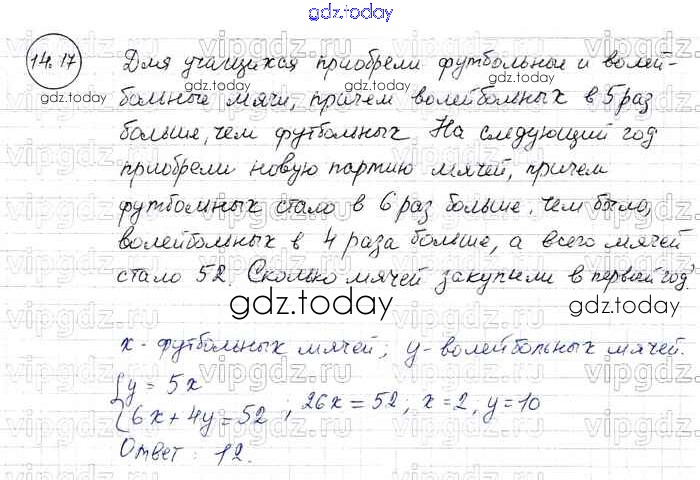 gdz.today
14.17
Для учащихся приобрели футбольные и волей-
gdz.today
gdz.today
gdz.today
больные мячи, причем волейбольных в 5 раз
больше, чем футбольных. На следующий год
приобрели новую партию мячей, причем
футбольных стало в 6 раз больше, чем было,
волейбольных в 4 раза больше, а всего мячей
стало 52. Сколько мячей закупили в первый год?
gdz.today
gdz.today
x - футбольных мячей; y - волейбольных мячей.
{y = 5x
{6x + 4y = 52 ; 26x = 52; x = 2, y = 10
Ответ: 12.
gdz.today
gdz.today
gdz.today